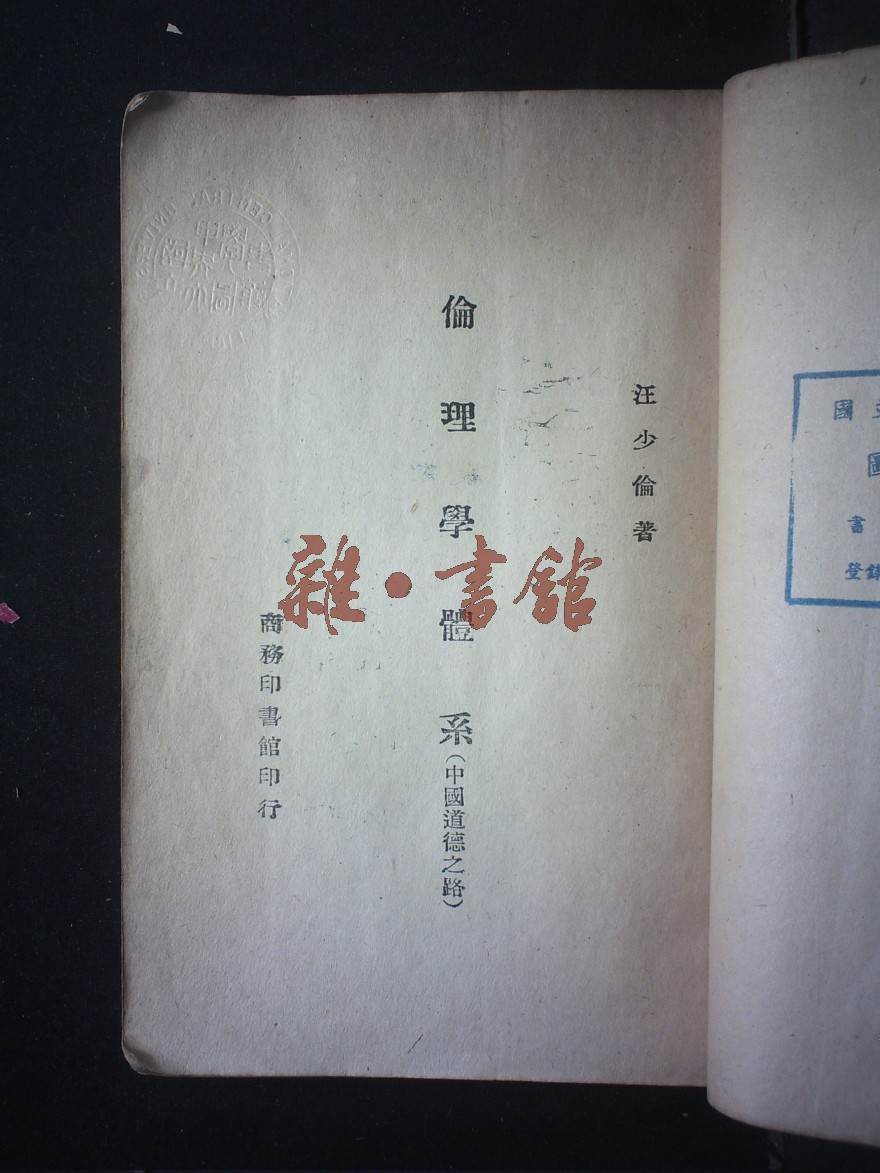 汪少倫著
倫理學體系(中國道德之路)
商務印書館印行
雜·書館
CENTRAL
國立
圖
書
登錄